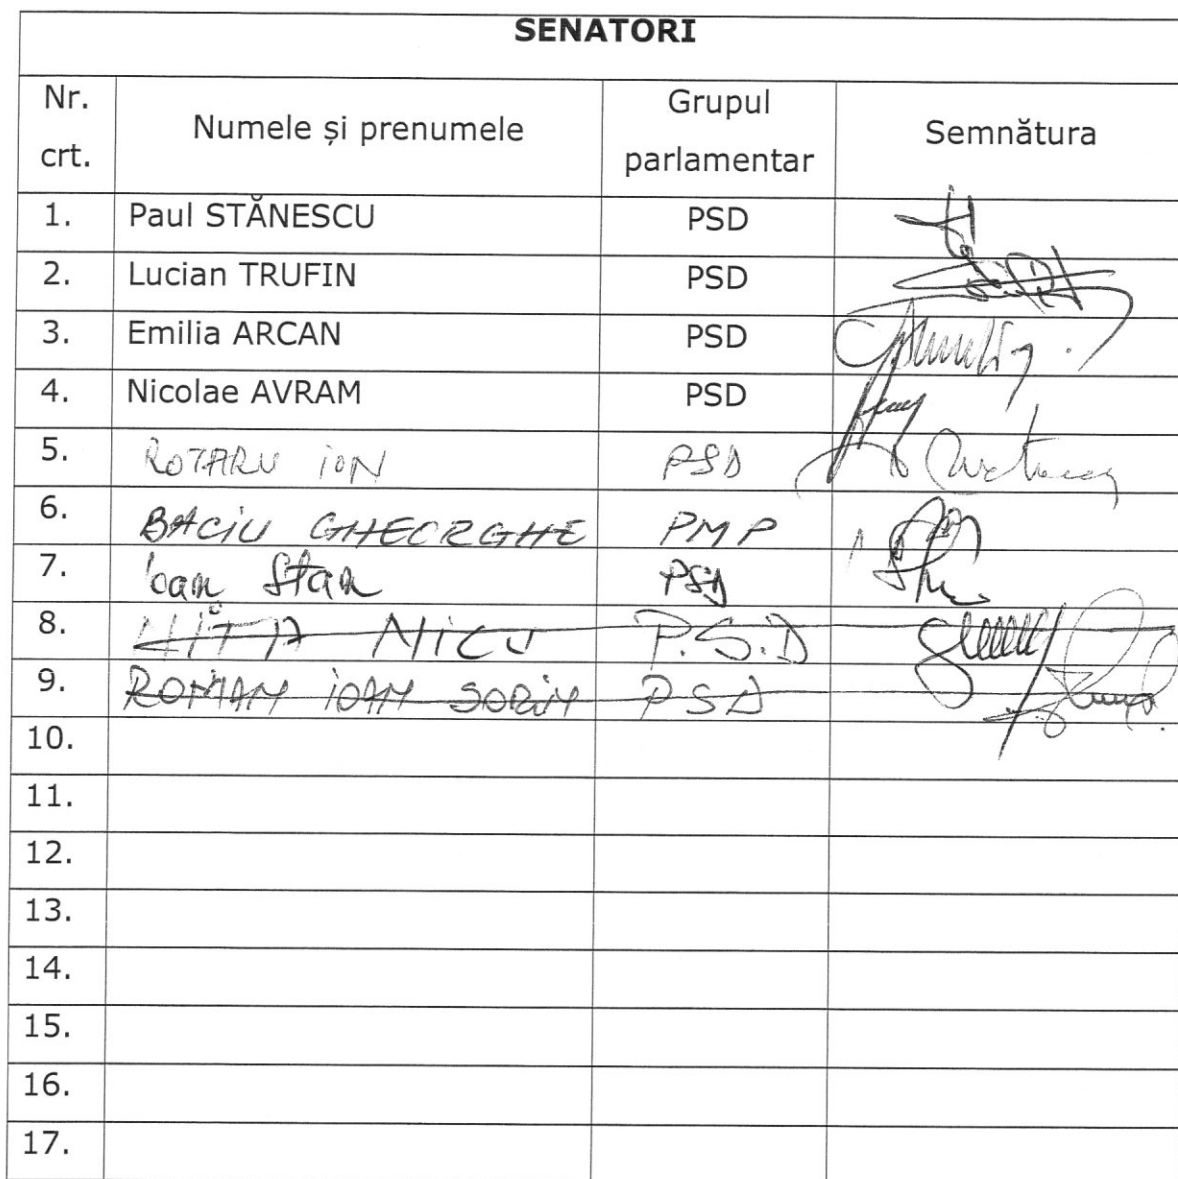 SENATORI
Nr. crt. Numele și prenumele Grupul parlamentar Semnătura
1. Paul STĂNESCU PSD
2. Lucian TRUFIN PSD
3. Emilia ARCAN PSD
4. Nicolae AVRAM PSD
5. ROTARU ION PSD
6. BACIU GHEORGHE PMP
7. Ioan Stan PSD
8. NIȚĂ NICU P.S.D
9. ROMAN IOAN SORIN PSD
10.
11.
12.
13.
14.
15.
16.
17.